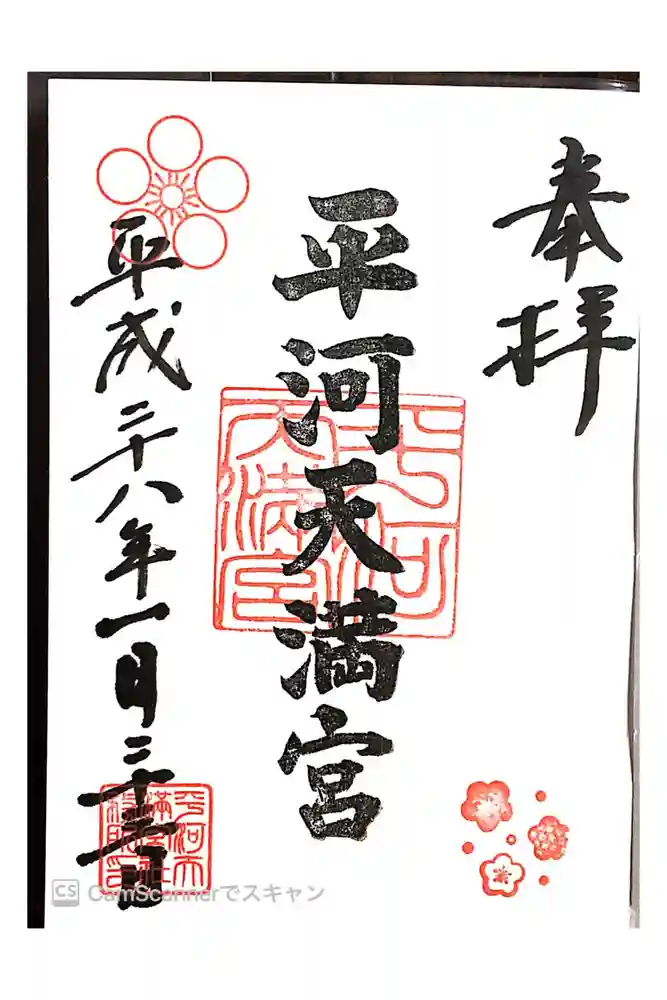 奉拝
平河天満宮
平河
天満宮
平成二十八年一月二十五日
平河天
満宮社
務所印
CS CamScannerでスキャン